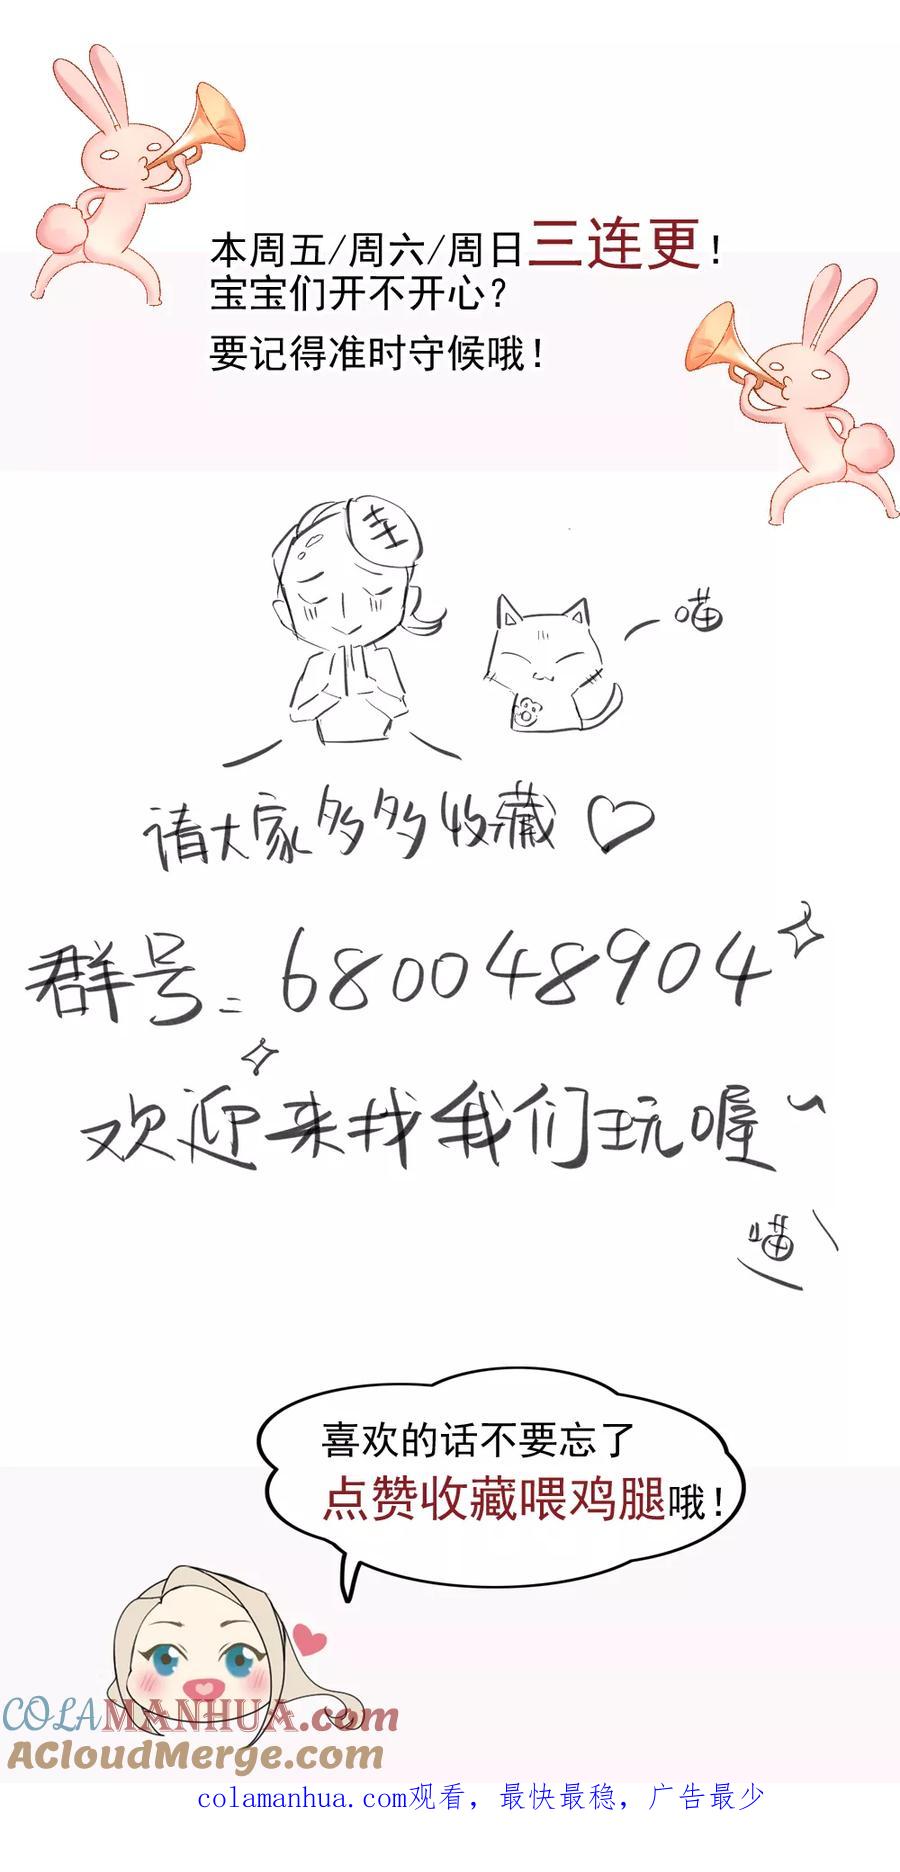 本周五/周六/周日三连更!
宝宝们开不开心?
要记得准时守候哦!
圭
喵
请大家多多收藏♡
群号:680048904
欢迎来找我们玩喔~
喵
喜欢的话不要忘了
点赞收藏喂鸡腿哦!
COLAMANHUA.com
ACloudMerge.com
colamanhua.com观看，最快最稳，广告最少